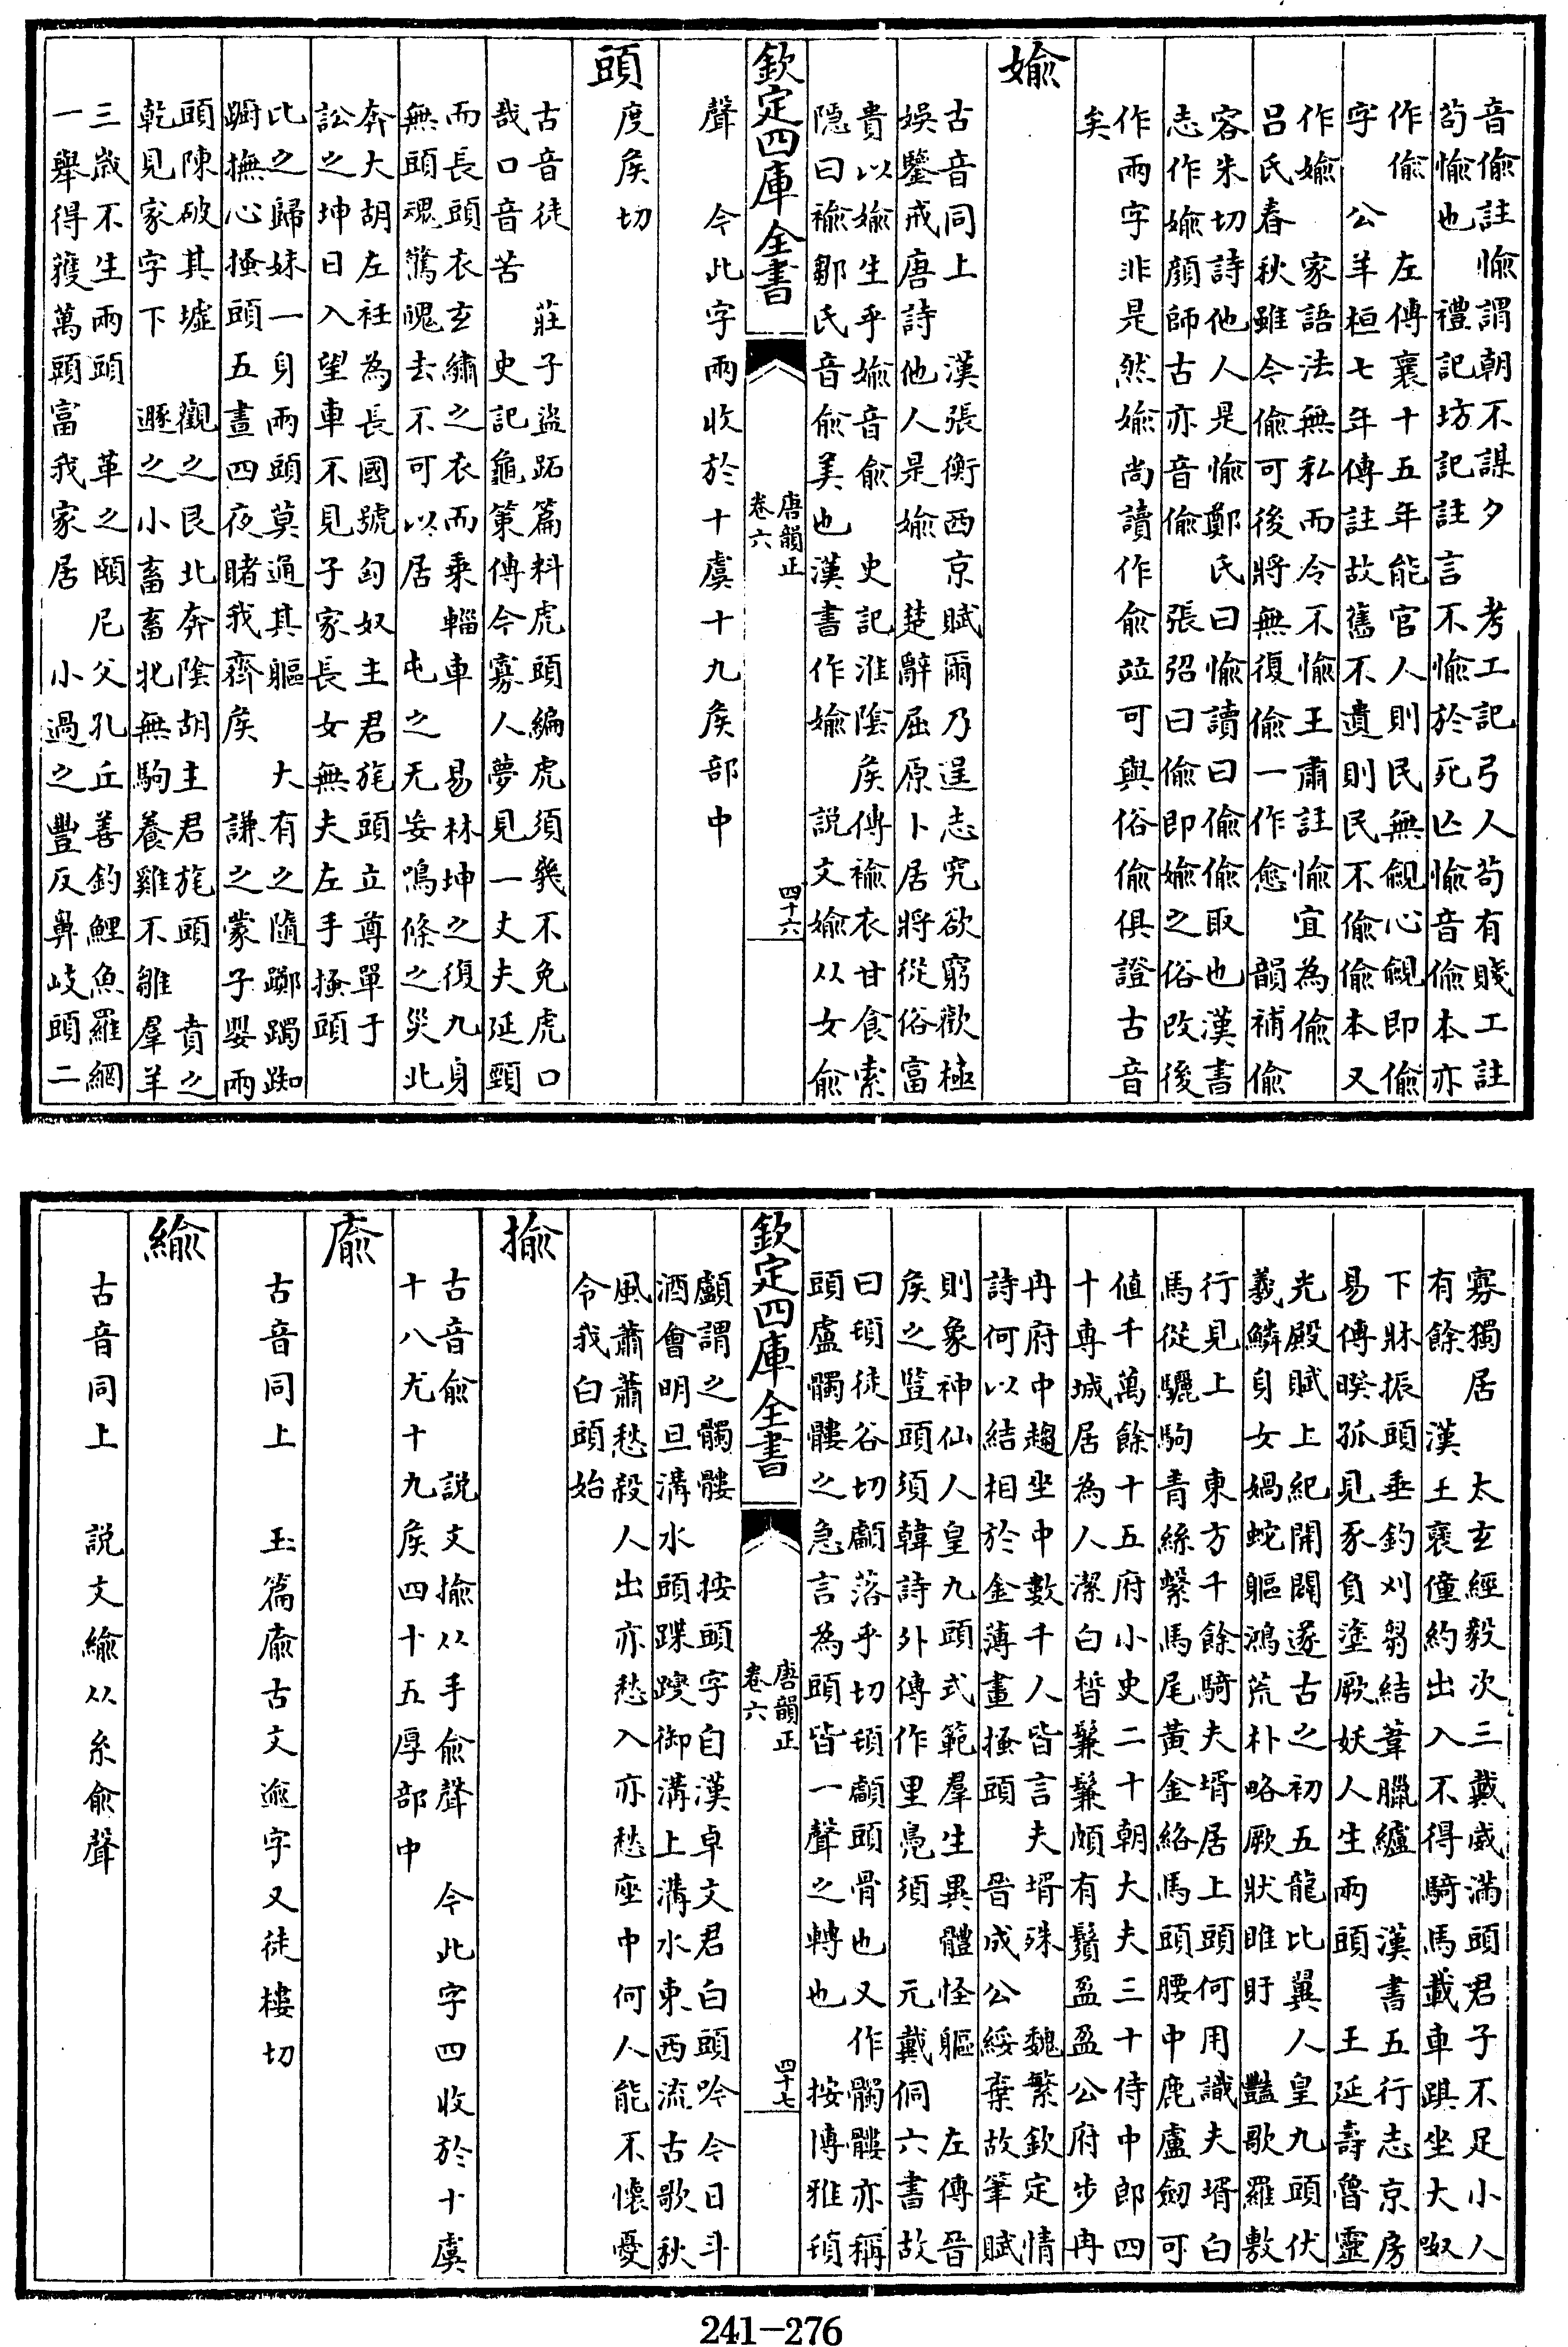 音偷註愉謂朝不謀夕　考工記弓人苟有賤工註
苟愉也　禮記坊記註言不愉於死亾愉音偷本亦
作偷　左傳襄十五年能官人則民無覦心覦即偷
字　公羊桓七年傳註故舊不遺則民不偷偷本又
作媮　家語法無私而令不愉王肅註愉宜為偷
呂氏春秋雖今偷可後將無復偷一作愈　韻補偷
容朱切詩他人是愉鄭氏曰愉讀曰偷偷取也漢書
志作媮顔師古亦音偷　張弨曰偷即媮之俗改後
作兩字非是然媮尚讀作俞竝可與俗偷俱證古音
矣
媮
古音同上　漢張衡西京賦爾乃逞志究欲窮歡極
娛鑒戒唐詩他人是媮　楚辭屈原卜居將從俗富
貴以媮生乎媮音俞　史記淮陰矦傳褕衣甘食索
隱曰褕鄒氏音俞美也漢書作媮　説文媮从女俞
欽定四庫全書
唐韻正
卷六
四十六
聲　今此字兩收於十虞十九矦部中
頭
度矦切
古音徒　莊子盜跖篇料虎頭編虎須幾不免虎口
哉口音苦　史記龜策傳今寡人夢見一丈夫延頸
而長頭衣玄繡之衣而乘輜車　易林坤之復九身
無頭魂驚魄去不可以居　屯之无妄鳴條之災北
奔大胡左衽為長國號匈奴主君旄頭立尊單于
訟之坤日入望車不見子家長女無夫左手搔頭
比之歸妹一身兩頭莫適其軀　大有之隨躑躅踟
蹰撫心搔頭五晝四夜睹我齊矦　謙之蒙子嬰兩
頭陳破其墟　觀之艮北奔陰胡主君旄頭　賁之
乾見家字下　遯之小畜畜牝無駒養雞不雛羣羊
三歲不生兩頭　革之頤尼父孔丘善釣鯉魚羅網
一舉得獲萬頭富我家居　小過之豐反鼻岐頭二
寡獨居　太玄經毅次三戴威滿頭君子不足小人
有餘　漢王襃僮約出入不得騎馬載車踑坐大呶
下牀振頭垂釣刈芻結葦臘纑　漢書五行志京房
易傳睽孤見豕負塗厥妖人生兩頭　王延壽魯靈
光殿賦上紀開闢遂古之初五龍比翼人皇九頭伏
羲鱗身女媧蛇軀鴻荒朴略厥狀睢盱　豔歌羅敷
行見上　東方千餘騎夫壻居上頭何用識夫壻白
馬從驪駒青絲繫馬尾黃金絡馬頭腰中鹿盧劒可
值千萬餘十五府小史二十朝大夫三十侍中郎四
十專城居為人潔白晳鬑鬑頗有鬚盈盈公府步冉
冉府中趨坐中數千人皆言夫壻殊　魏繁欽定情
詩何以結相於金薄畫搔頭　晉成公綏棄故筆賦
則象神仙人皇九頭式範羣生異體怪軀　左傳晉
矦之豎頭須韓詩外傳作里鳧須　元戴侗六書故
曰䪴徒谷切顱落乎切䪴顱頭骨也又作髑髏亦稱
頭盧髑髏之急言為頭皆一聲之轉也　按博雅䪴
欽定四庫全書
唐韻正
卷六
四十七
顱謂之髑髏　按頭字自漢卓文君白頭吟今日斗
酒會明旦溝水頭蹀躞御溝上溝水東西流古歌秋
風蕭蕭愁殺人出亦愁入亦愁座中何人能不懷憂
令我白頭始
揄
古音俞　説文揄从手俞聲　今此字四收於十虞
十八尤十九矦四十五厚部中
㢏
古音同上　玉篇㢏古文逾字又徒樓切
緰
古音同上　説文緰从糸俞聲
241-276